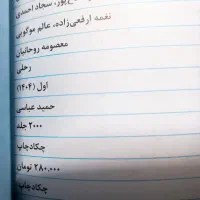 پور، سجاد احمدی
نغمه ارفعی‌زاده، عالم موگویی
معصومه روحانیان
رحلی
اول (۱۴۰۴)
حمید عباسی
۲۰۰۰ جلد
چکادچاپ
۲۸۰،۰۰۰ تومان
چکادچاپ